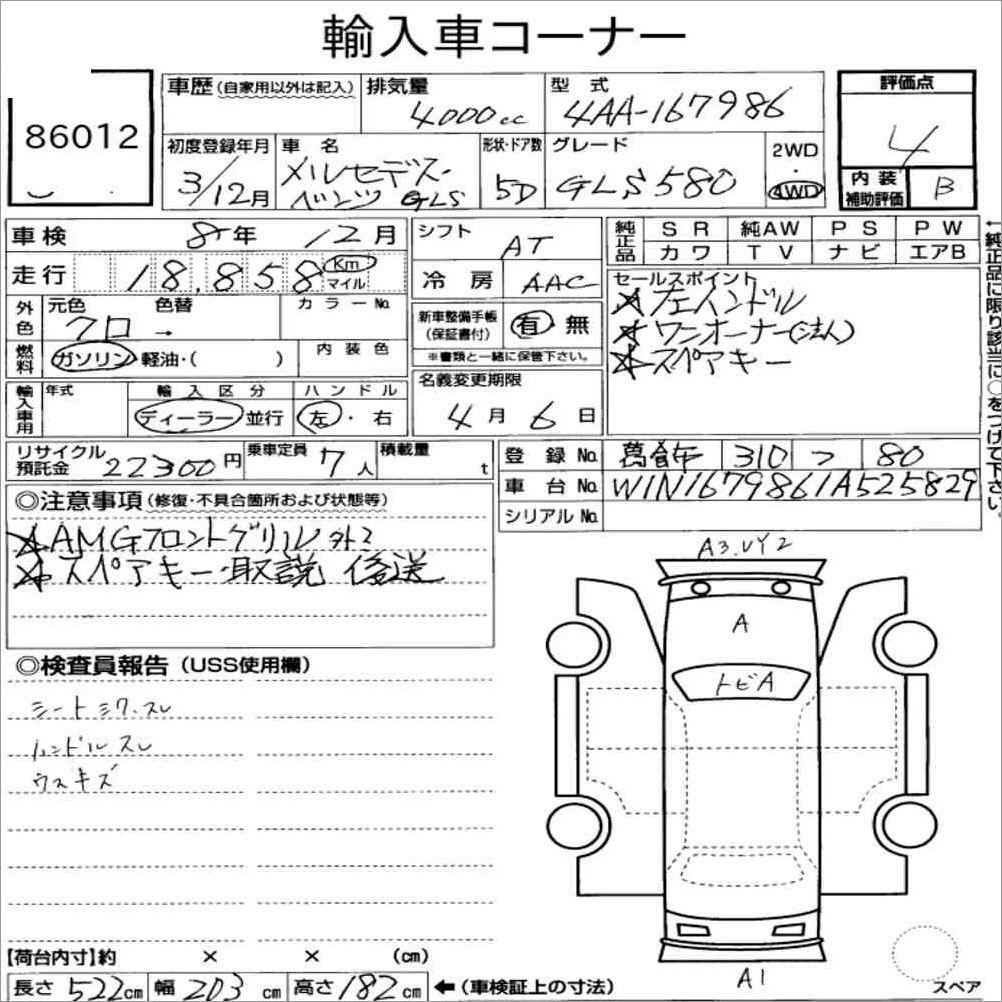 輸入車コーナー
86012
車歴(自家用以外は記入) 排気量 4000cc 型式 4AA-167986
評価点 4
初度登録年月 3/12月 車名 メルセデス ベンツ GLS 形状・ドア数 5D グレード GLS580 2WD 4WD
内装補助評価 B
車検 8年 12月
走行 18,858 Km マイル
シフト AT
冷房 AAC
純正品 SR 純AW PS PW
カワ TV ナビ エアB
←純正品に限り該当に○をつけて下さい。
外色 元色 クロ 色替 → カラーNo.
燃料 ガソリン 軽油・( ) 内装色
新車整備手帳(保証書付) 有・無
※書類と一緒に保管下さい。
セールスポイント
左ハンドル
ワンオーナー(法人)
スペアキー
輸入車用 年式 輸入区分 ディーラー 並行 ハンドル 左・右
名義変更期限 4月6日
リサイクル預託金 22300円 乗車定員 7人 積載量 t
登録No. 310 つ 80
車台No. W1N1679861A525829
シリアルNo.
◎注意事項(修復・不具合箇所および状態等)
AMGフロントグリル 外
スペアキー・取説 後送
◎検査員報告(USS使用欄)
シート シワ・スレ
ハンドル スレ
ウスキズ
A3.UY2
A
トビA
A1
スペア
【荷台内寸】約 × × (cm)
長さ 522cm 幅 203cm 高さ 182cm ←(車検証上の寸法)